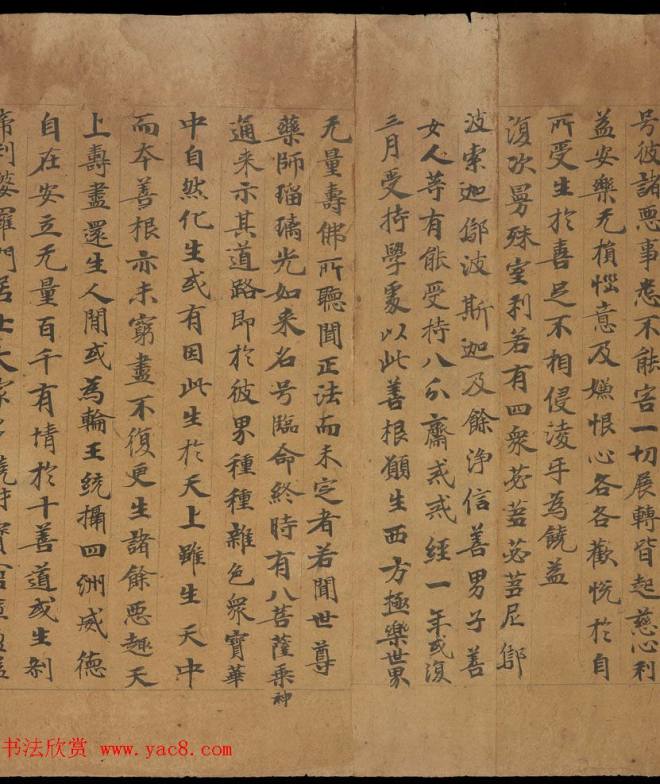 号彼諸悪事悉不能害一切展轉皆起慈心利
益安樂无損惱意及嫌恨心各各歡悅於自
所受生於喜足不相侵淩乎為饒益
復次曼殊室利若有四衆苾蒭苾蒭尼鄔
波索迦鄔波斯迦及餘浄信善男子善
女人䒭有能受持八分齋戒或經一年或復
三月受持學處以此善根願生西方極樂世界
无量壽佛所聽聞正法而未定者若聞世尊
藥師瑠璃光如来名号臨命終時有八菩薩乗神
通来示其道路即於彼界種種雜色衆寶華
中自然化生或有因此生於天上雖生天中
而夲善根亦未窮盡不復更生諸餘悪趣天
上壽盡還生人間或為輪王統攝四洲威德
自在安立无量百千有情於十善道或生剎
帝利婆羅門居士大家
書法欣赏 www.yac8.com